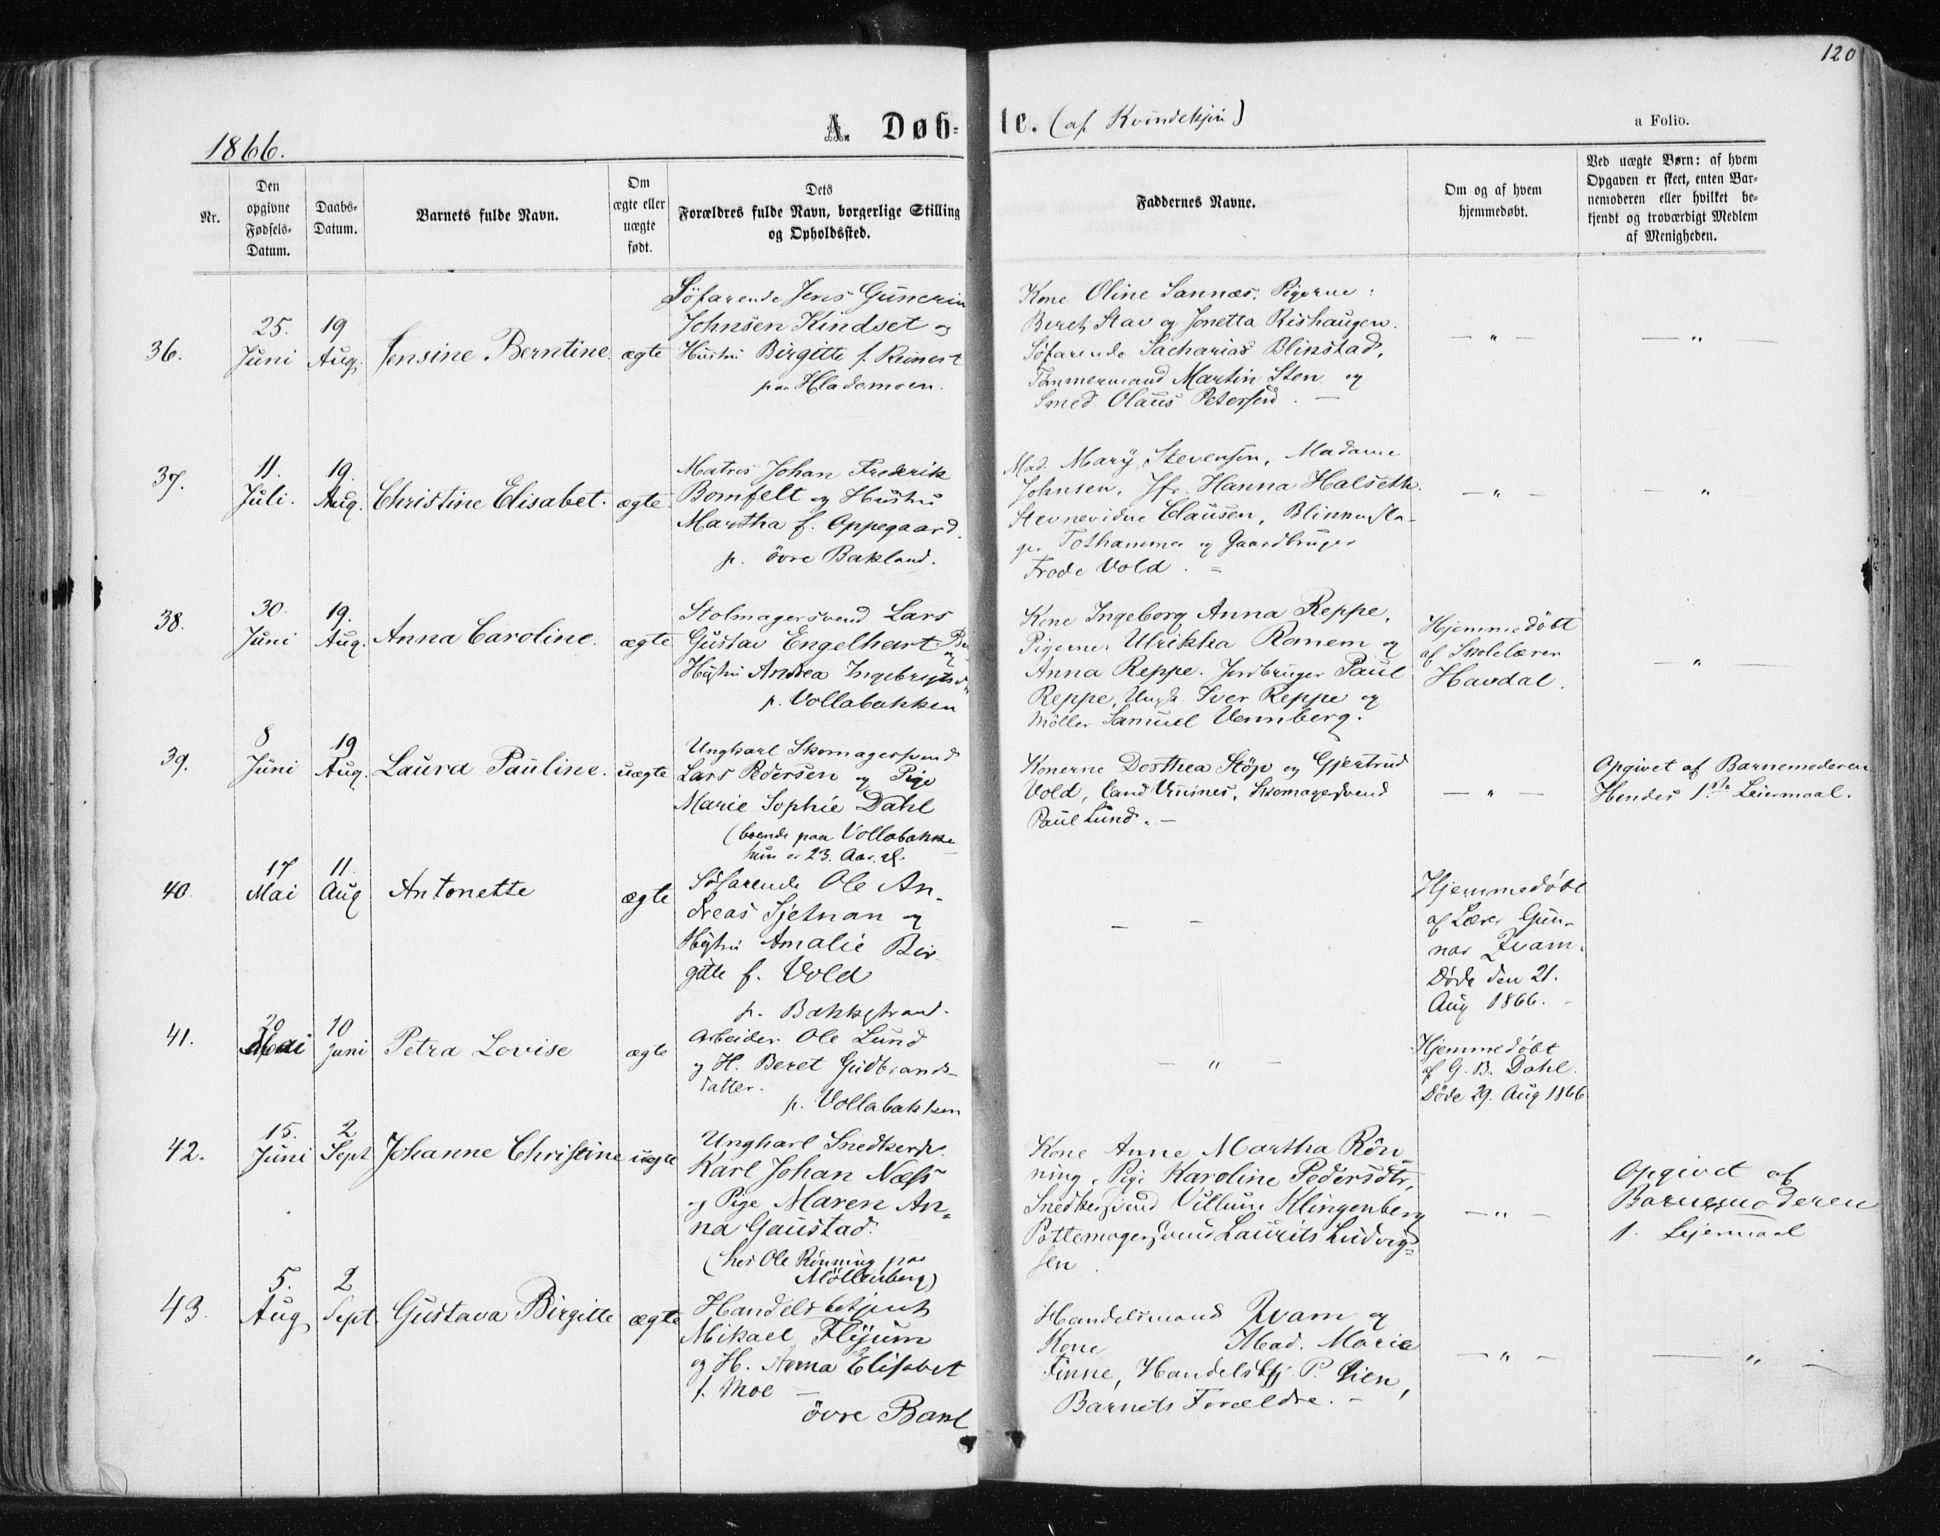 120
1866.
A. Døbte. (af Kvindekjøn)
a Folio.
Nr.
Den opgivne Fødsels-Datum.
Daabs-Datum.
Barnets fulde Navn.
Om ægte eller uægte født.
Dets Forældres fulde Navn, borgerlige Stilling og Opholdssted.
Faddernes Navne.
Om og af hvem hjemmedøbt.
Ved uægte Børn: af hvem Opgaven er skeet, enten Barnemoderen eller hvilket bekjendt og troværdigt Medlem af Menigheden.
36.
25. Juni
19 Aug.
Jensine Berntine.
ægte
Söfarende Jens Gunerin
Johnsen Kindset og
Hustru Birgitte f. Reinert
paa Hlademoen.
Kone Oline Sannæs. Pigerne:
Beret Stav og Jonetta Rishaugen.
Söfarende Sacharias Blinstad,
Tömmermand Martin Sten og
Smed Olaus Petersen. —
— " —
— " —
37.
11. Juli.
19. Aug.
Christine Elisabet.
ægte
Matros Johan Frederik
Bomfelt og Hustru
Martha f. Oppegaard.
p. övre Bakland.
Mad. Mary Stevenson, Madame
Johnsen. Jfr. Hanna Halseth.
Stevnevidne Clausen, Blikkensla-
ger Tothammer og Gaardbruger
Frode Vold. =
— " —
— "
38.
30. Juni
19. Aug.
Anna Caroline.
ægte
Stolmagersvend Lars
Gustav Engelhart
og
Hustru Andrea Ingebrigtsd
p. Vollabakken
Kone Ingeborg Anna Reppe,
Pigerne: Ulrikka Ranem og
Anna Reppe. Jordbruger Paul
Reppe, Ungk. Iver Reppe og
Möller Samuel Vennberg.
Hjemmedöbt
af Skolelærer
Havdal.
— " —
39.
8 Juni
19 Aug.
Laura Pauline.
uægte
Ungkarl Skomagersvend
Lars Pedersen og Pige
Marie Sophie Dahl
(boende paa Vollabakke
hun er 23. Aar gl.
Konerne Dorthea Stöp og Gjertrud
Vold, Cand Vusines, Skomagersvend
Paul Lund. —
— " —
Opgivet af Barnemoderen
Hendes 1ste Leiermaal.
40.
17 Mai
11. Aug
Antonette
ægte
Söfarende Ole An-
dreas Sjetnan og
Hustru Amalie Bir-
gitte f. Vold
p. Bakkestrand.
—
—
Hjemmedöbt
af Lærer Gun-
nar Kvam.
Döde den 21.
Aug 1866.
41.
20 Mai
10 Juni
Petra Lovise
ægte
Arbeider Ole Lund
og H. Beret Gudbrands-
datter.
p. Vollabakken
— " —
Hjemmedöbt
af G. B. Dahl.
Döde 29. Aug 1866
42.
15. Juni
2 Sept
Johanne Christine
uægte
Ungkarl Snedkersv.
Karl Johan Næss
og Pige Maren An-
na Gaustad.
(hos Ole Rönning paa
Möllenberg)
Kone Anne Martha Rön
ning, Pige Karoline Pedersdtr,
Snedkersvend Villum Klingenberg
Pottemagersvend Laurits Ludvig-
sen.
— " —
Opgivet af
Barnemoderen
1. Lejermaal
43.
5. Aug
2 Sept
Gustava Birgitte
ægte
Handelsbetjent
Mikael Flyum
og H. Anna Elisabet
f. Moe —
övre Bakl
Handelsmand Kvam og
Kone Mad. Marie
Finne, Handelsbtj. P. Lien,
Barnets Forældre. —
— " —
— " —